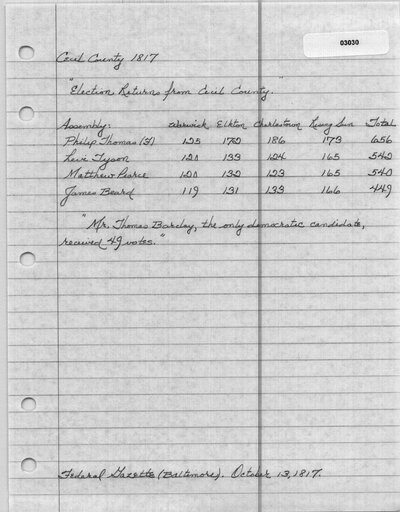 03030
Cecil County 1817
"Election Returns from Cecil County."
Assembly: Warwick Elkton Charlestown Rising Sun Total
Philip Thomas (F) 125 172 186 173 656
Levi Tyson 120 133 124 165 542
Matthew Pearce 120 132 123 165 540
James Beard 119 131 133 166 449
"Mr. Thomas Barclay, the only democratic candidate,
received 49 votes."
Federal Gazette (Baltimore). October 13, 1817.